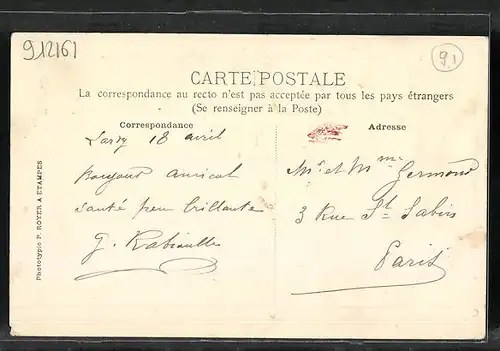 912161
91
CARTE POSTALE
La correspondance au recto n'est pas acceptée par tous les pays étrangers
(Se renseigner à la Poste)
Correspondance
Adresse
Lardy 18 avril
Bonjour amical
santé peu brillante
G.
Mr et Mme Germond
3 Rue St Sabin
Paris
Phototypie P. ROYER A ETAMPES